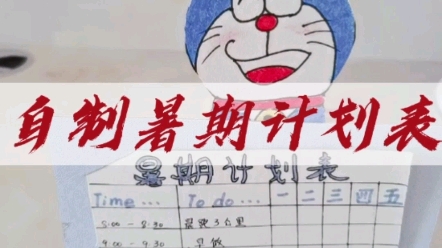 自制暑期计划表
暑期计划表
Time... To do... 一 二 三 四 五
8:00 - 8:30
9:00 - 9:30 早饭